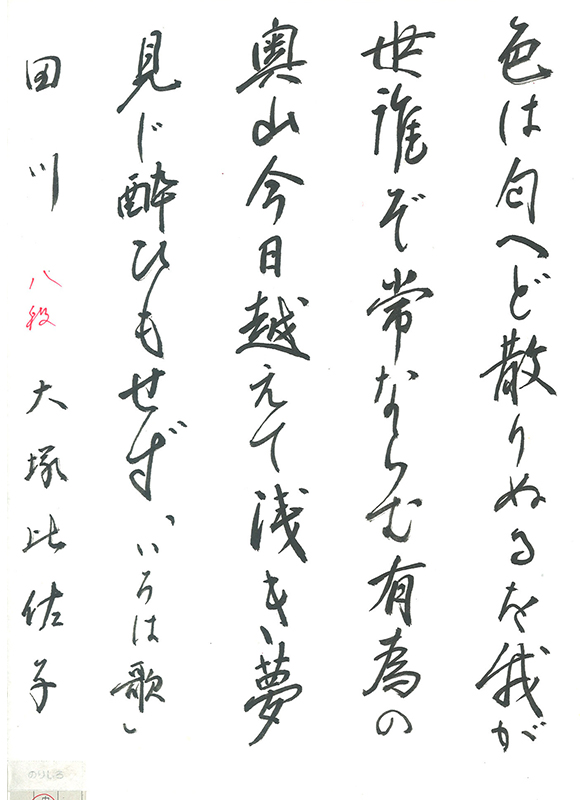 色は匂へど散りぬるを我が
世誰ぞ常ならむ有為の
奥山今日越えて浅き夢
見じ酔ひもせず「いろは歌」
田川 八段 大塚比佐子
のりしろ